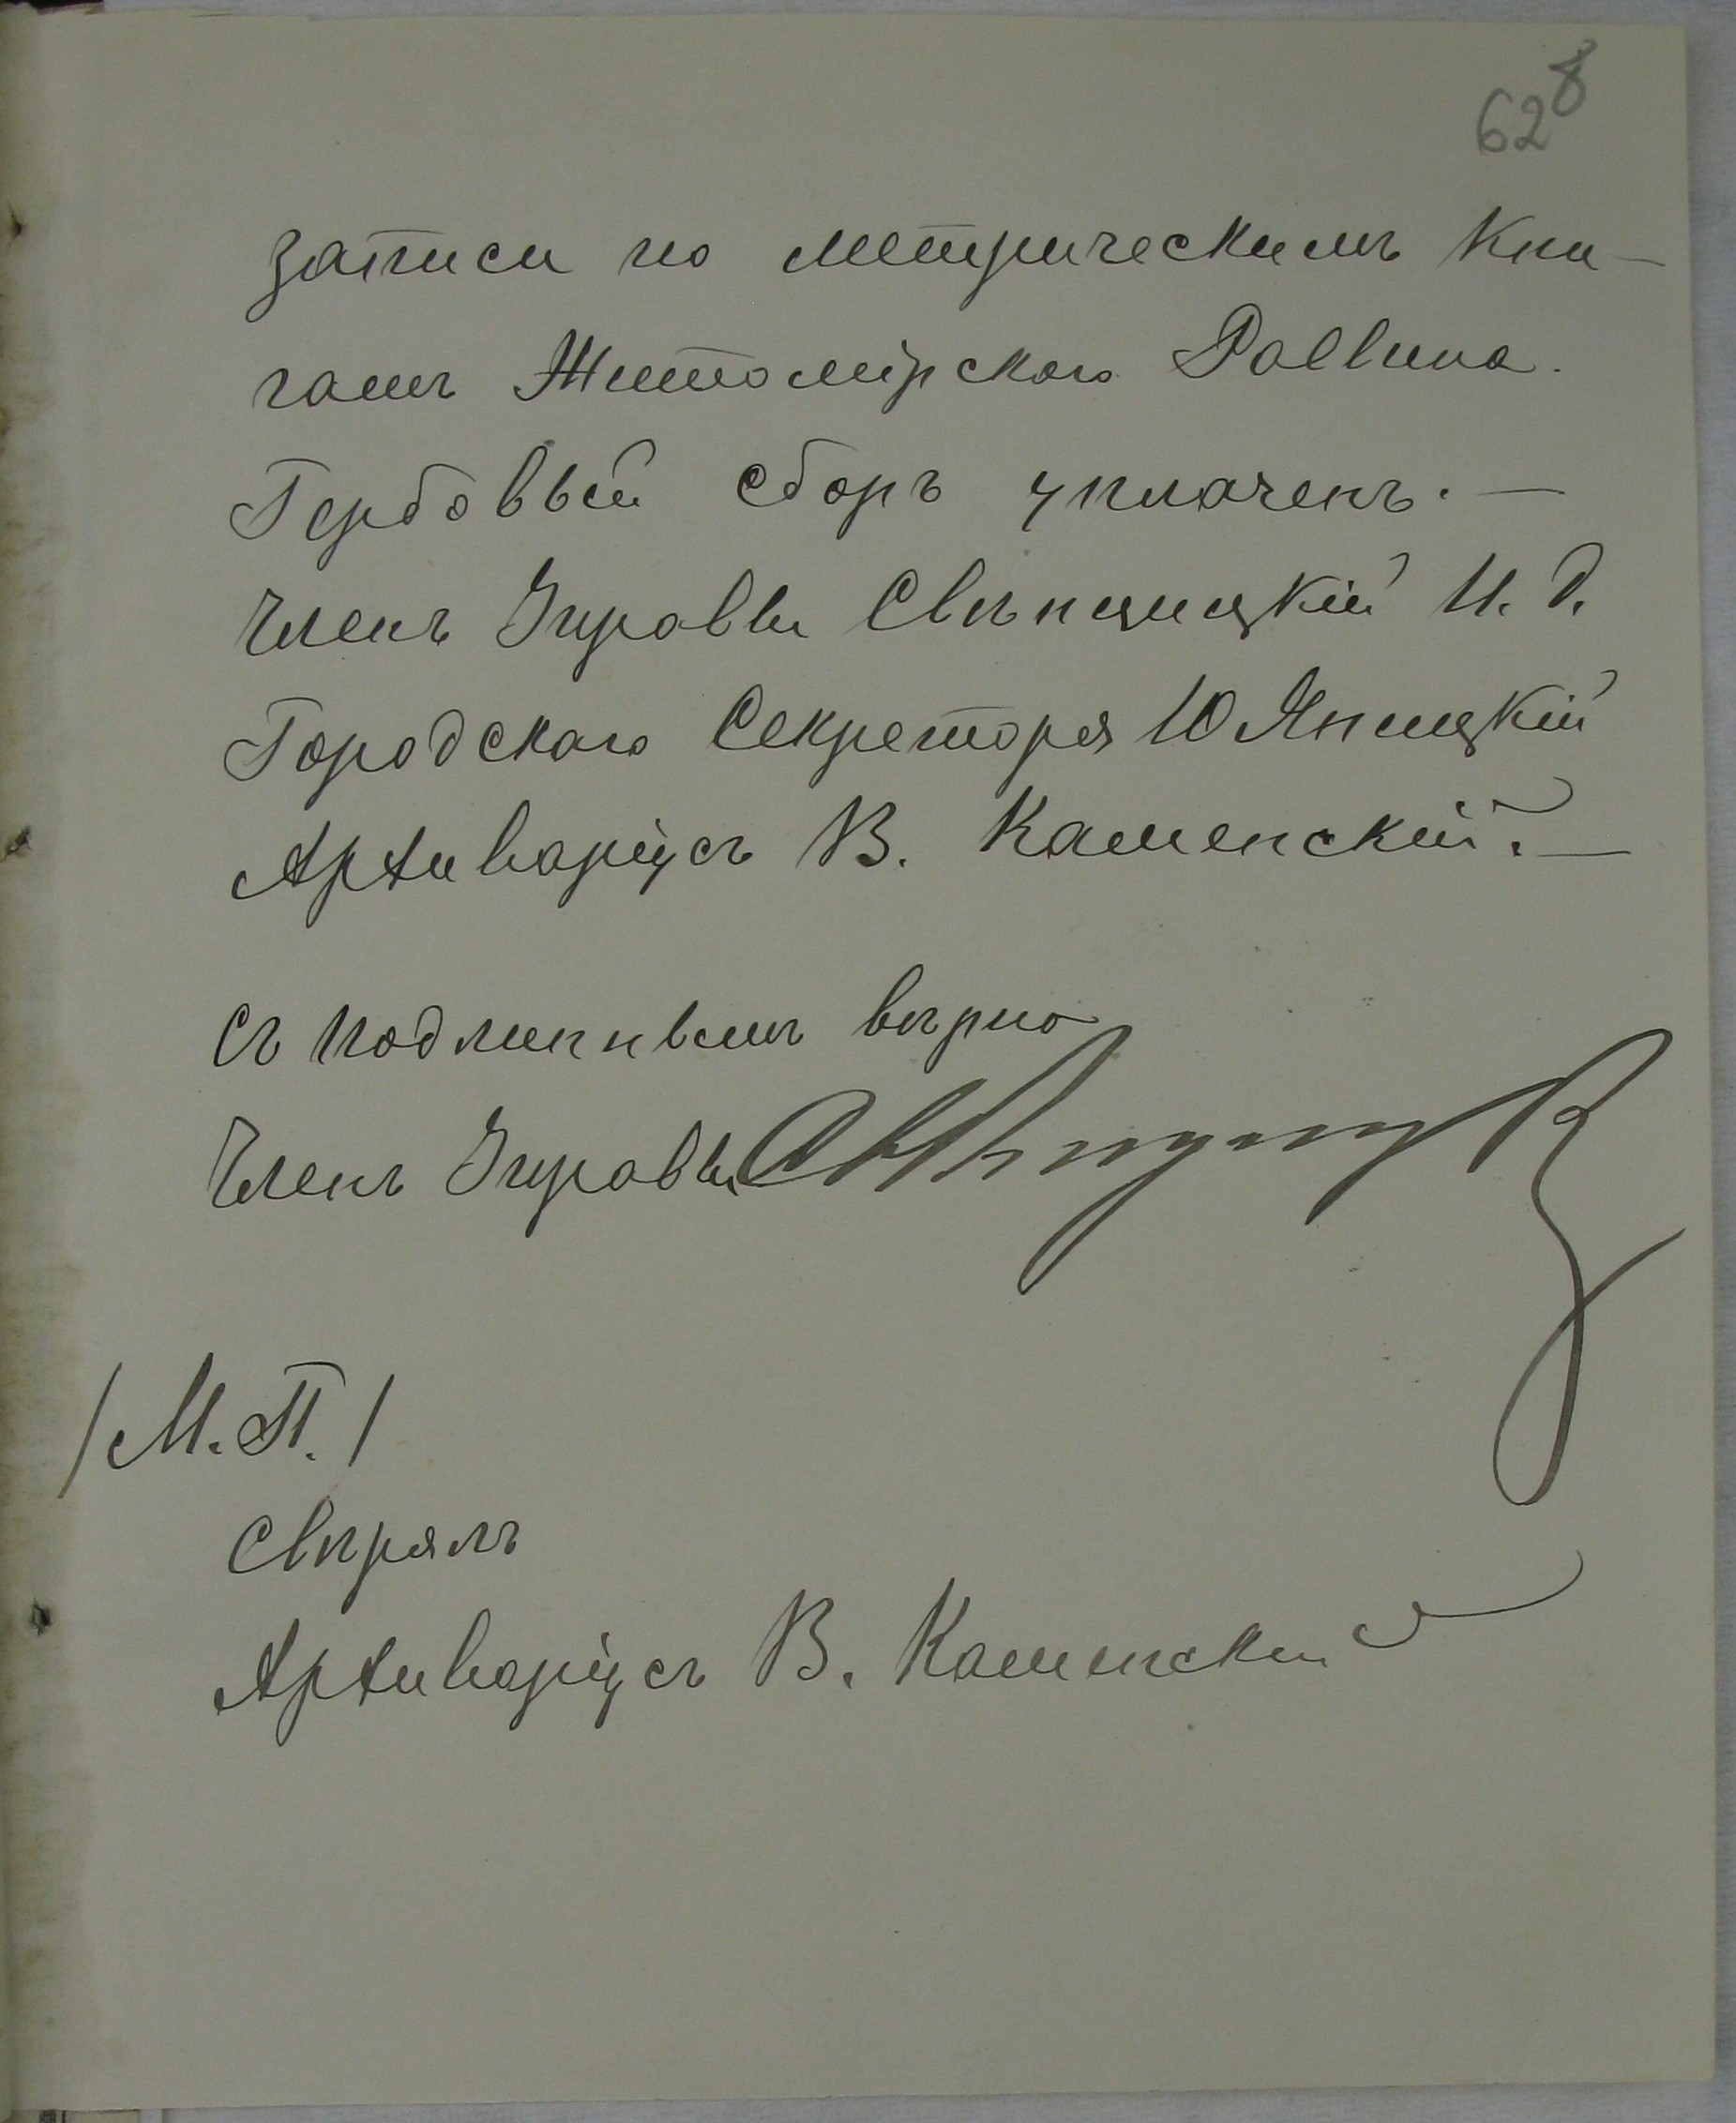 62 8
записи по метрическимъ кни-
гамъ Житомiрскаго Раввина.
Гербовый сборъ уплаченъ.—
Членъ Управы Свѣнцицкій И. д.
Городского Секретаря Ю Яницкій
Архиваріусъ В. Каменскій.—
Съ подлиннымъ вѣрно
Членъ Управы
/М.П./
Свѣрялъ
Архиваріусъ В. Каменский